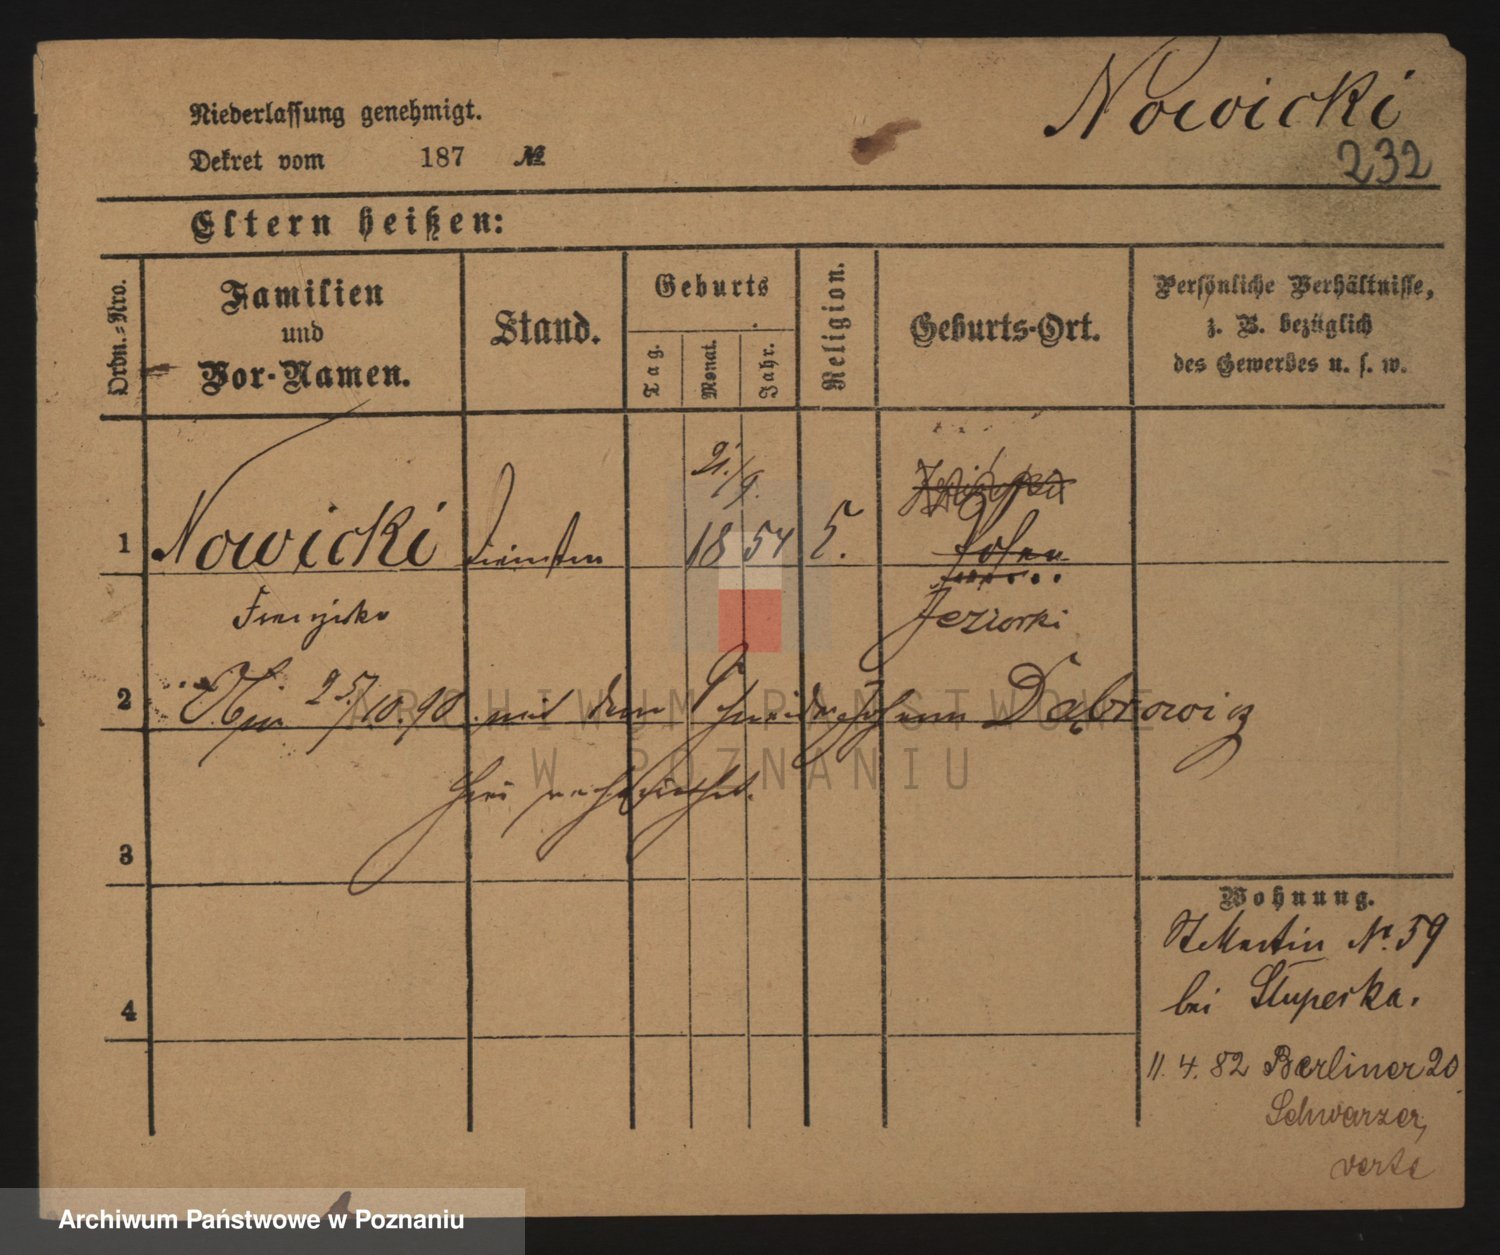 Nowicki
232
Niederlassung genehmigt.
Dekret vom 187 №
Eltern heißen:
Ordn.-Nro.
Familien
und
Vor-Namen.
Stand.
Geburts
Tag.
Monat.
Jahr.
Religion.
Geburts-Ort.
Persönliche Verhältnisse,
z. B. bezüglich
des Gewerbes u. s. w.
21./9.
1 Nowicki 18 54
Posen
Jeziorki
2 25/10. 90 mit dem Schneider Johann Dąbrowicz
hier
3
4
Wohnung.
St Martin Nr. 59
bei Słupeska.
11. 4. 82 Berliner 20
Schwarzer,
verte
ARCHIWUM PAŃSTWOWE
W POZNANIU
Archiwum Państwowe w Poznaniu